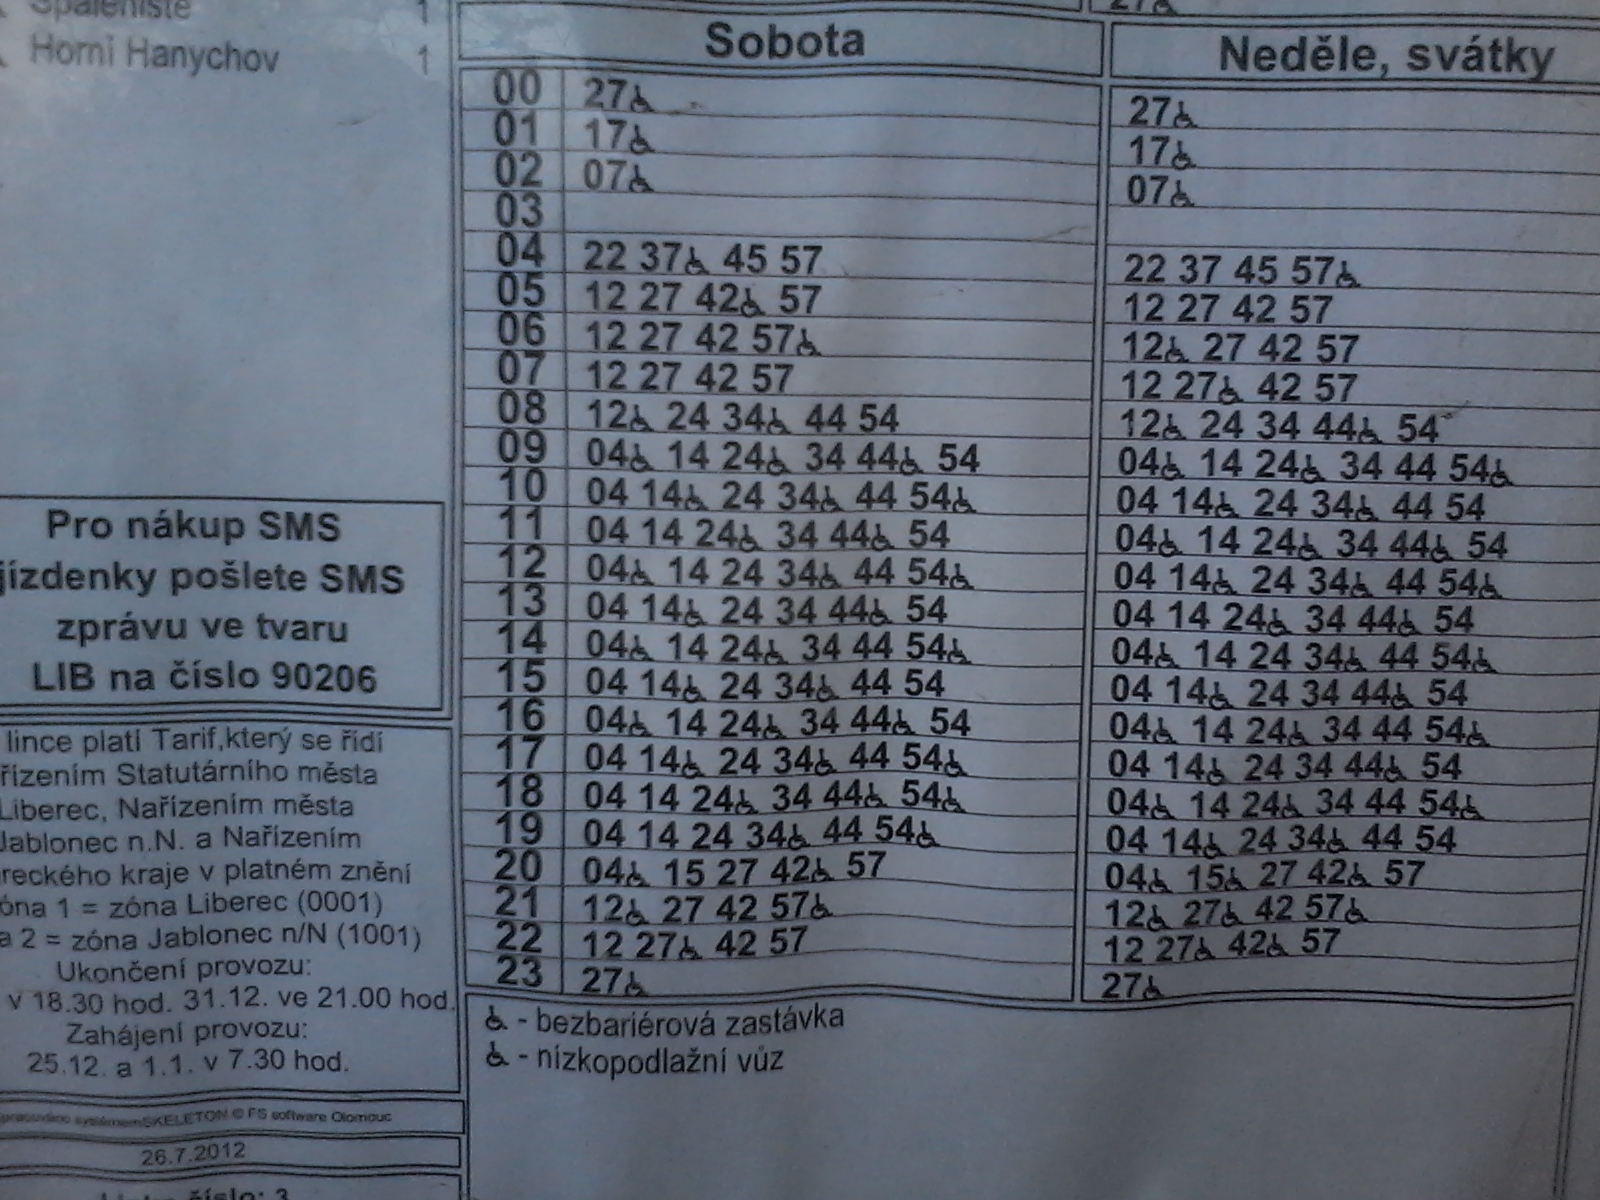 Spáleniště 1
Horní Hanychov 1
27♿
Sobota Neděle, svátky
00 27♿ 27♿
01 17♿ 17♿
02 07♿ 07♿
03
04 22 37♿ 45 57 22 37 45 57♿
05 12 27 42♿ 57 12 27 42 57
06 12 27 42 57♿ 12♿ 27 42 57
07 12 27 42 57 12 27♿ 42 57
08 12♿ 24 34♿ 44 54 12♿ 24 34 44♿ 54
09 04♿ 14 24♿ 34 44♿ 54 04♿ 14 24♿ 34 44 54♿
10 04 14♿ 24 34♿ 44 54♿ 04 14♿ 24 34♿ 44 54
11 04 14 24♿ 34 44♿ 54 04♿ 14 24♿ 34 44♿ 54
12 04♿ 14 24 34♿ 44 54♿ 04 14♿ 24 34♿ 44 54♿
13 04 14♿ 24 34 44♿ 54 04 14 24♿ 34 44♿ 54
14 04♿ 14 24♿ 34 44 54♿ 04♿ 14 24 34♿ 44 54♿
15 04 14♿ 24 34♿ 44 54 04 14♿ 24 34 44♿ 54
16 04♿ 14 24♿ 34 44♿ 54 04♿ 14 24♿ 34 44 54♿
17 04 14♿ 24 34♿ 44 54♿ 04 14♿ 24 34 44♿ 54
18 04 14 24♿ 34 44♿ 54♿ 04♿ 14 24♿ 34 44 54♿
19 04 14 24 34♿ 44 54♿ 04 14♿ 24 34♿ 44 54
20 04♿ 15 27 42♿ 57 04♿ 15♿ 27 42♿ 57
21 12♿ 27 42 57♿ 12♿ 27♿ 42 57♿
22 12 27♿ 42 57 12 27♿ 42♿ 57
23 27♿ 27♿
♿ - bezbariérová zastávka
♿ - nízkopodlažní vůz
Pro nákup SMS
jízdenky pošlete SMS
zprávu ve tvaru
LIB na číslo 90206
lince platí Tarif,který se řídí
řízením Statutárního města
Liberec, Nařízením města
Jablonec n.N. a Nařízením
reckého kraje v platném znění
óna 1 = zóna Liberec (0001)
a 2 = zóna Jablonec n/N (1001)
Ukončení provozu:
v 18.30 hod. 31.12. ve 21.00 hod.
Zahájení provozu:
25.12. a 1.1. v 7.30 hod.
systémemSKELETON © FS software Olomouc
26.7.2012
číslo: 3